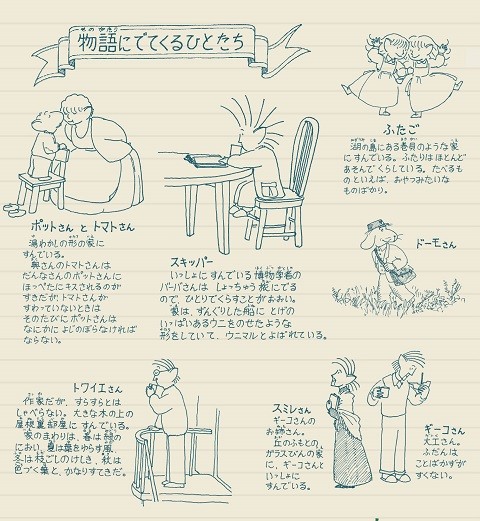 物語にでてくるひとたち
ものがたり
ふたご
湖の島にある巻貝のような家
にすんでいる。ふたりはほとんど
あそんでくらしている。たべるも
のといえば、おやつみたいな
ものばかり。
ポットさん と トマトさん
湯わかしの形の家に
すんでいる。
奥さんのトマトさんは
だんなさんのポットさんに
ほっぺたにキスされるのが
すきだが、トマトさんが
すわっていないときは
そのたびにポットさんは
なにかに よじのぼらなければ
ならない。
スキッパー
いっしょにすんでいる博物学者の
バーバさんは しょっちゅう旅にでる
ので、ひとりでくらすことがおおい。
家は、ずんぐりした船に とげの
いっぱいあるウニをのせたような
形をしていて、ウニマルとよばれている。
ドーモさん
トワイエさん
作家だが、すらすらとは
しゃべらない。大きな木の上の
屋根裏部屋に すんでいる。
家のまわりは、春は緑の
におい、夏は葉をゆらす風、
冬は枝ごしのけしき、秋は
色づく葉と、かなりすてきだ。
スミレさん
ギーコさんの
お姉さん。
丘のふもとの、
ガラスびんの家
に、ギーコさんと
いっしょに
すんでいる。
ギーコさん
大工さん。
ふだんは
ことばかずが
すくない。